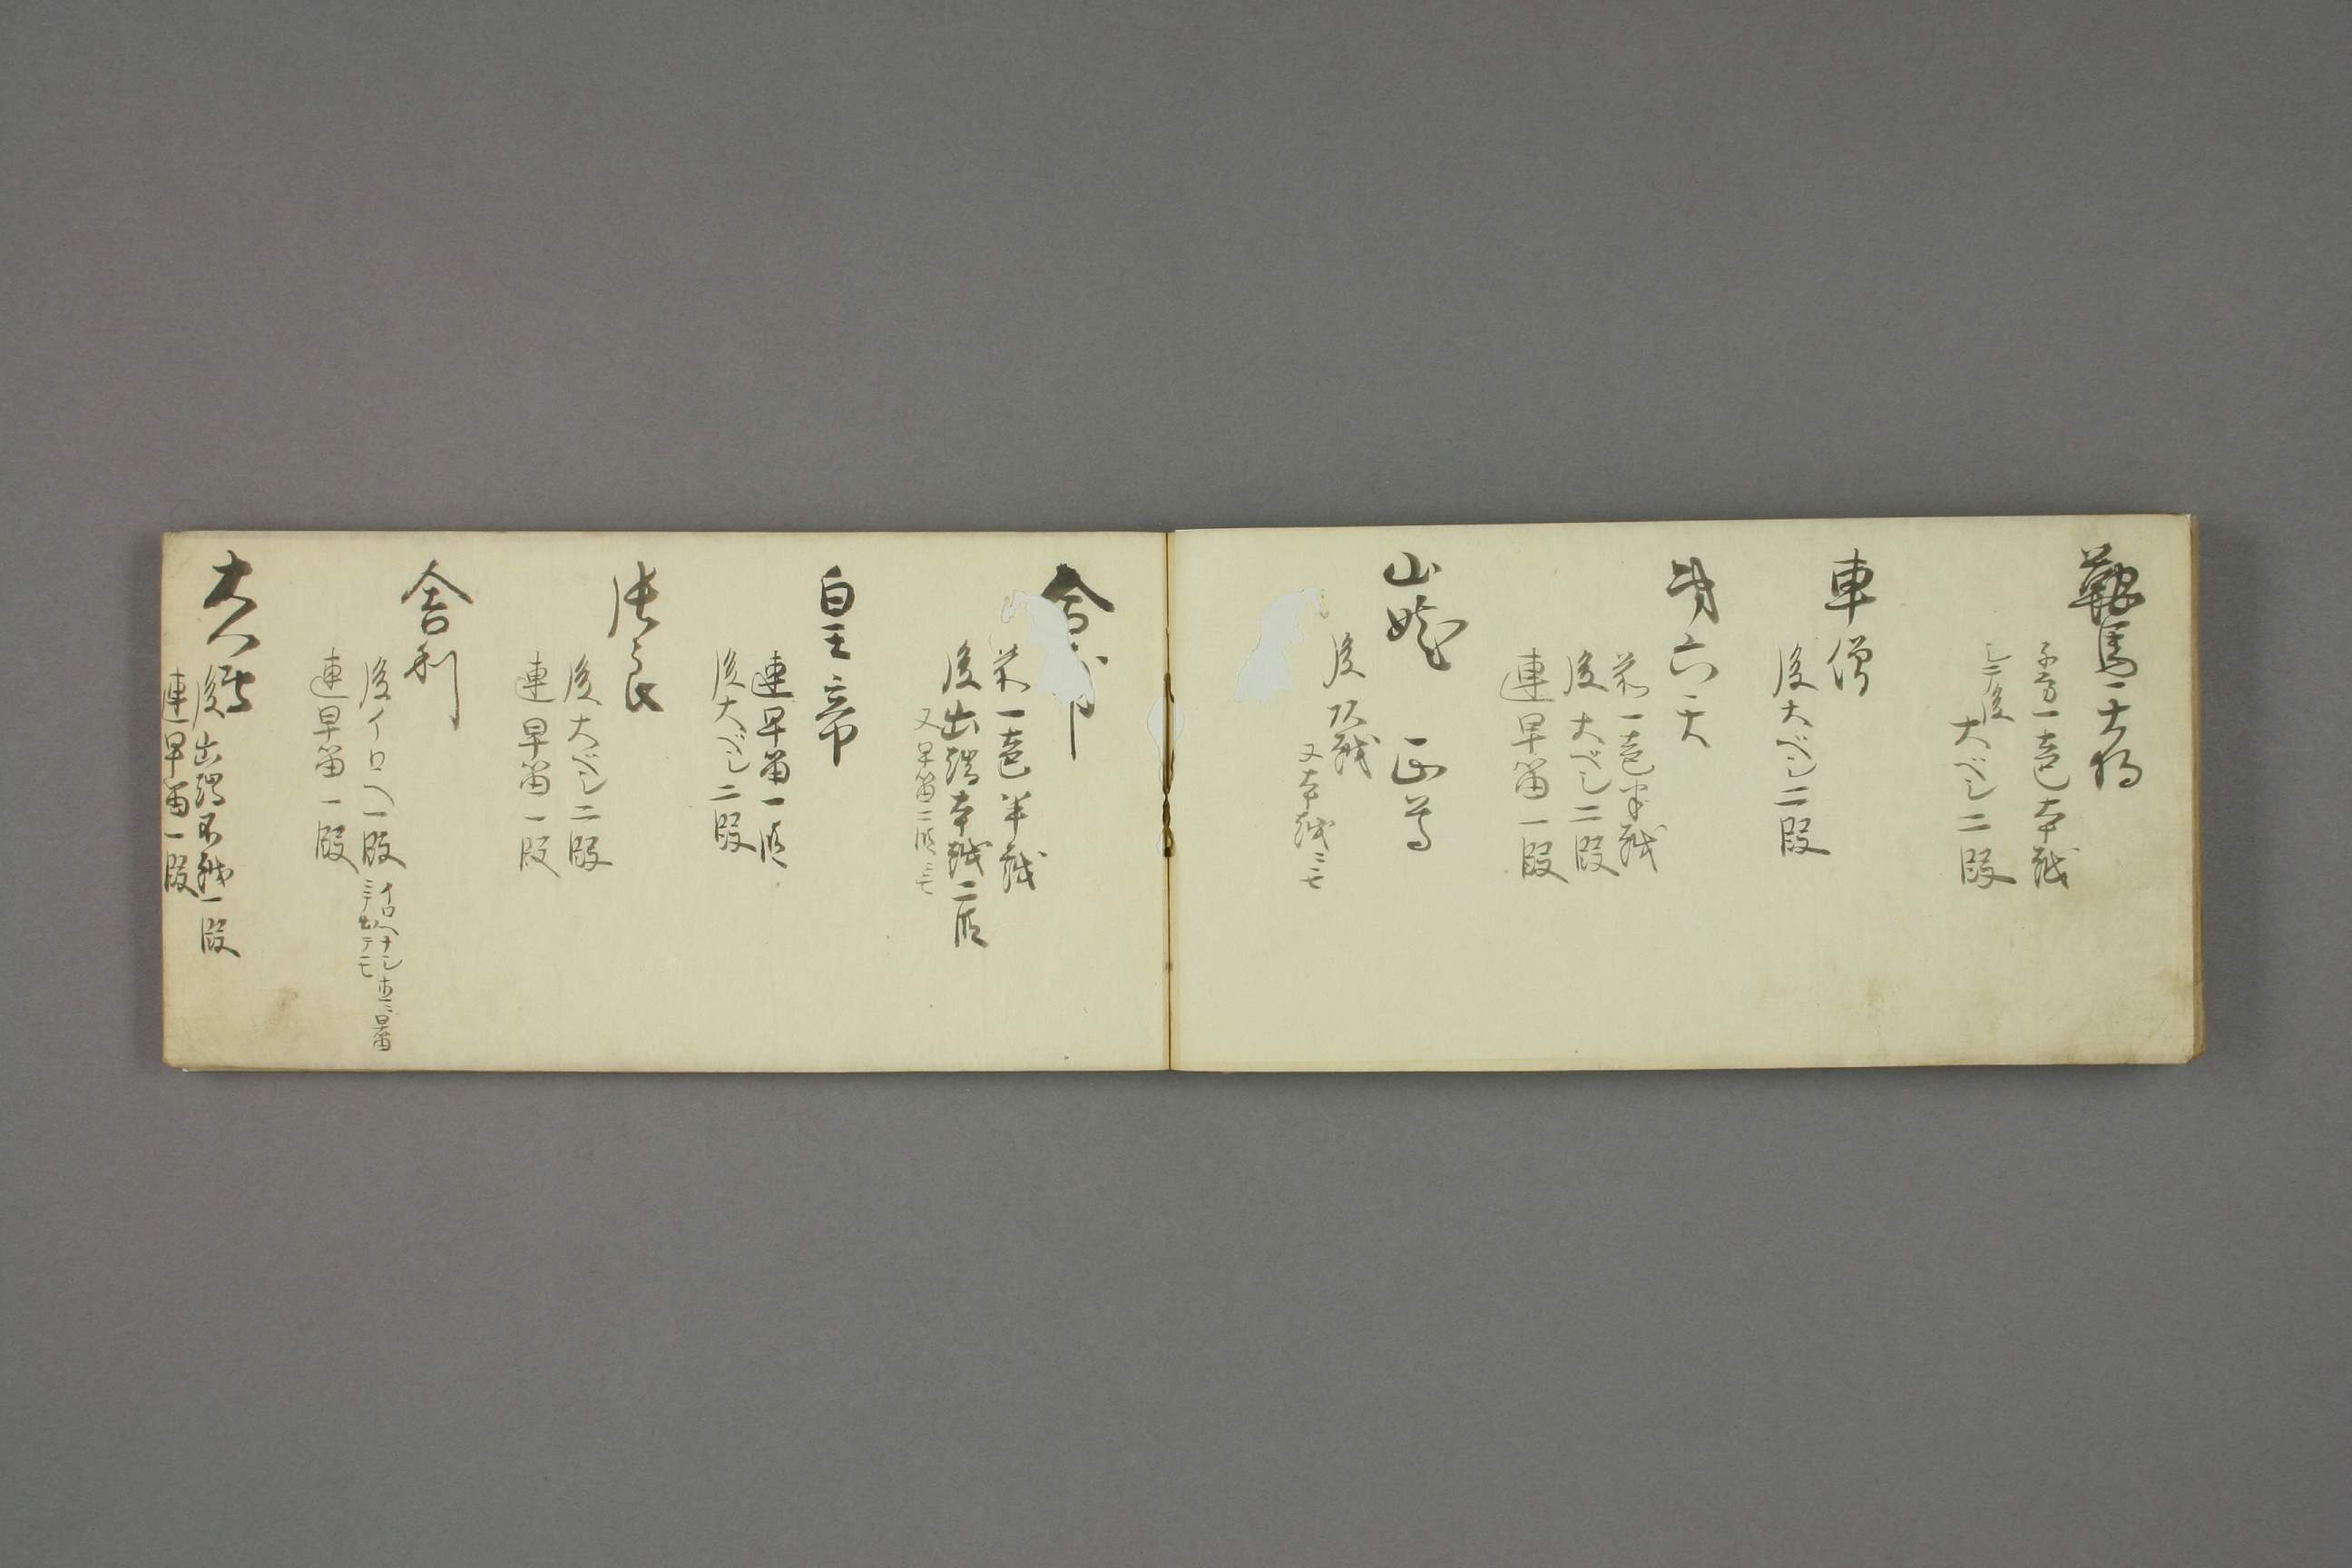 鞍馬天狗
子方一声本越
シテ後
大ベシ二段
車僧
後大ベシ二段
第六天
前一声半越
後大ベシ二段
連早笛一段
山姥 正尊
後 次越
又本越ニモ
前一声半越
後出端本越二段
又早笛二段ニモ
皇帝
連早笛一段
後大ベシ二段
張良
後大ベシ二段
連早笛一段
舎利
後イロヘ一段
イロヘナシ 直ニ早笛
ニテ出テモ
連早笛一段
大会
後出端不越一段
連早笛一段